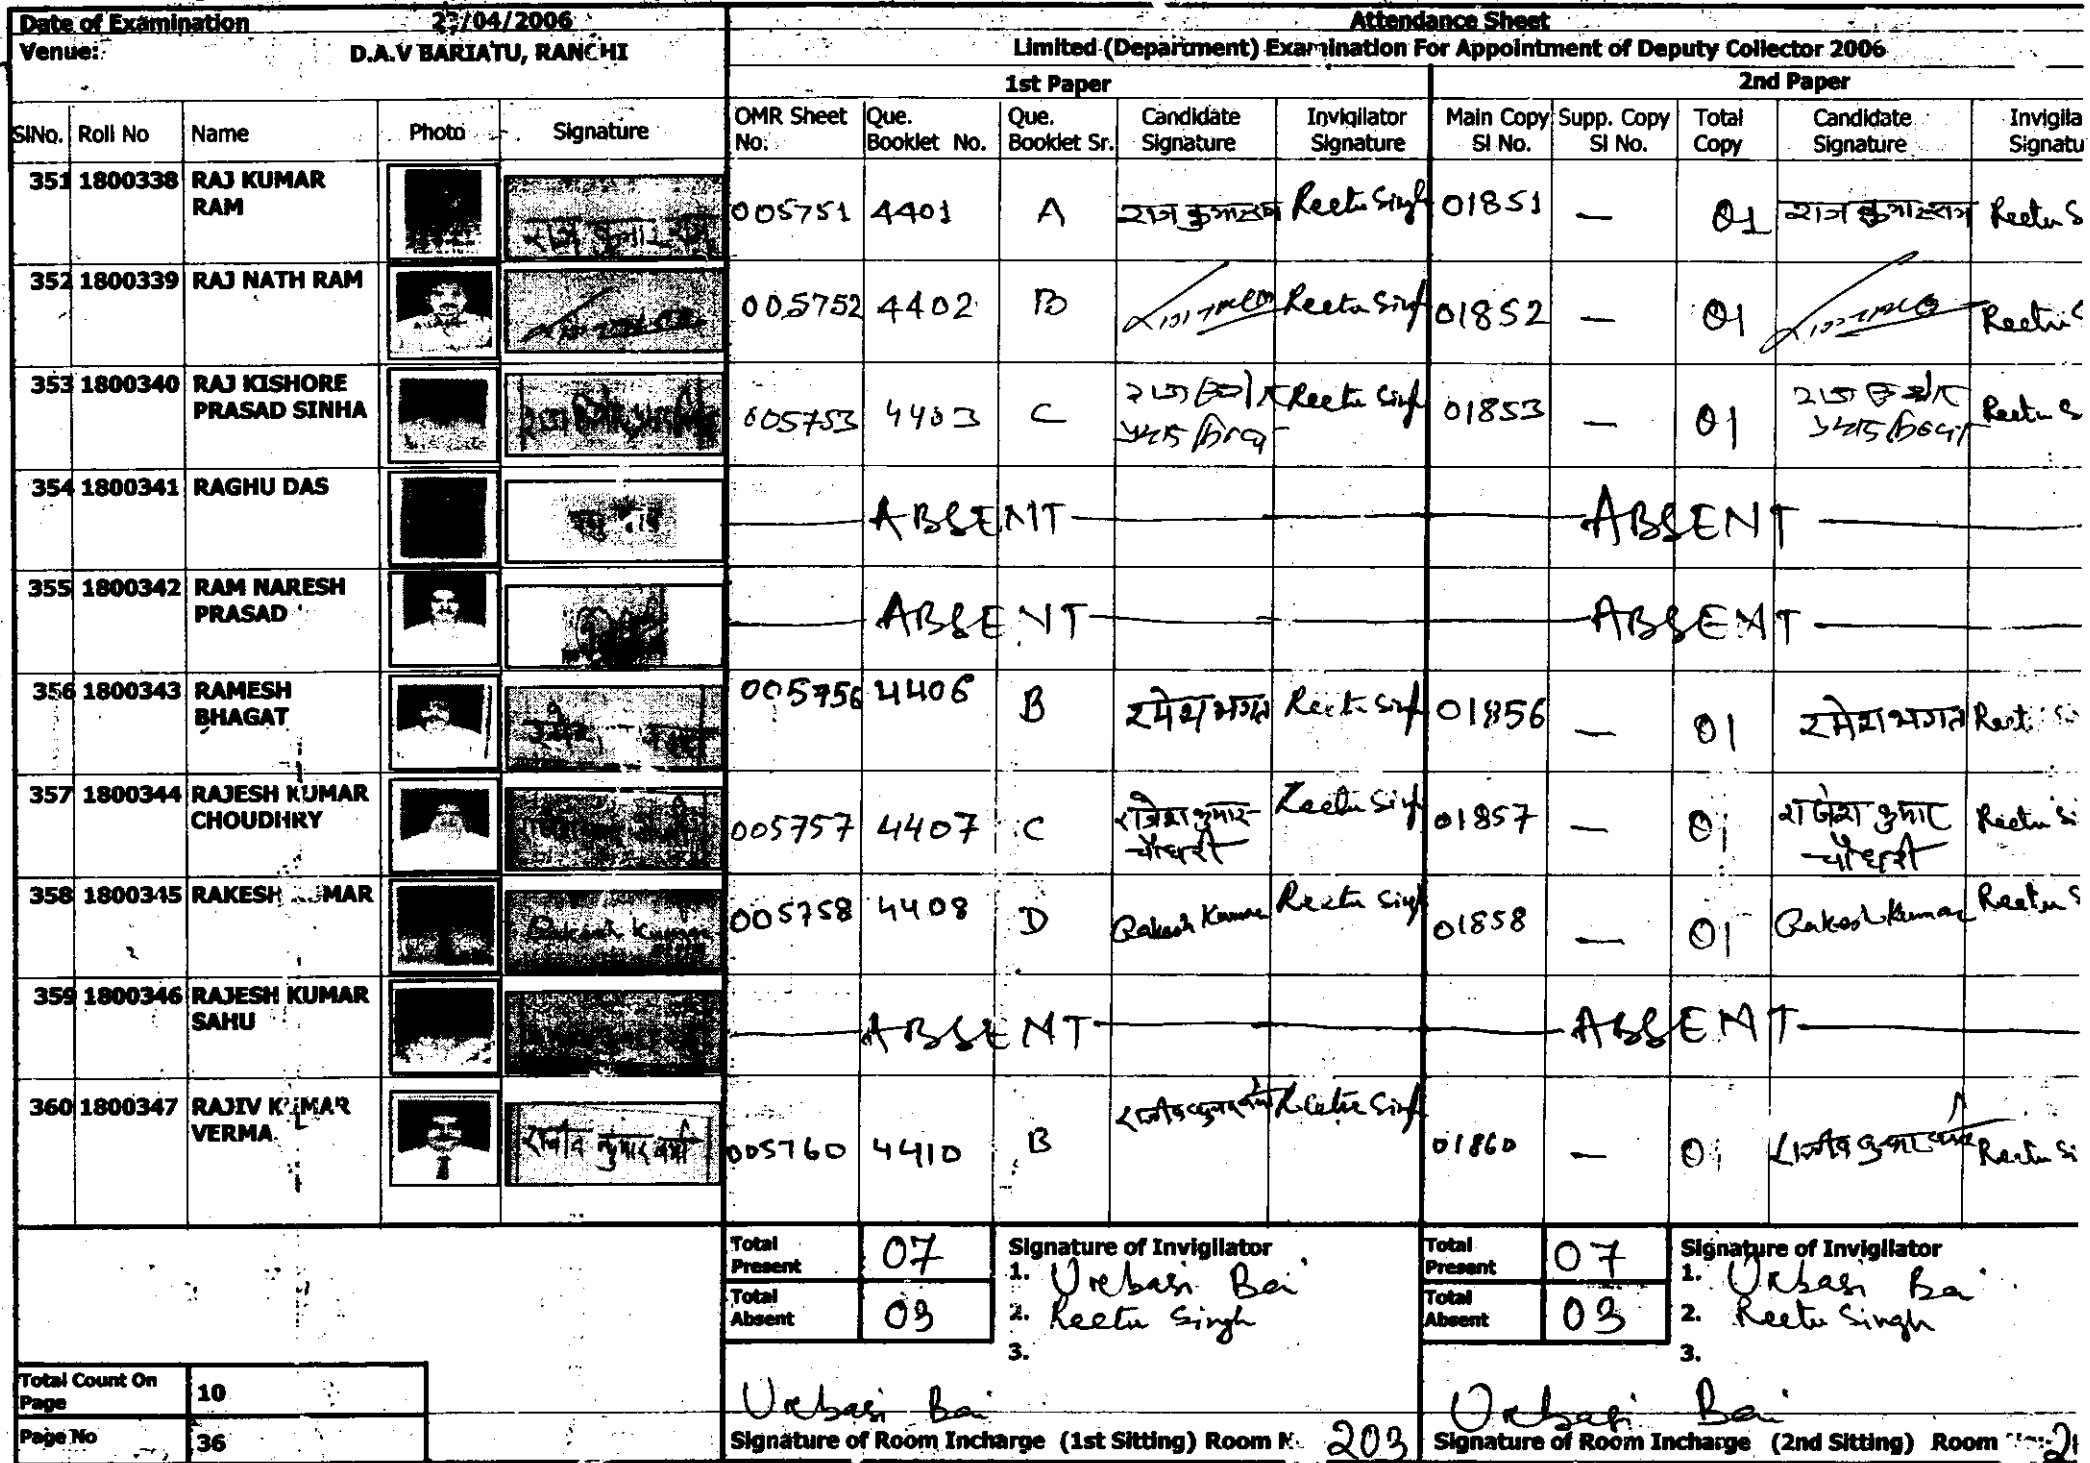 Date of Examination 23/04/2006 Attendance Sheet
Venue: D.A.V BARIATU, RANCHI Limited (Department) Examination For Appointment of Deputy Collector 2006
1st Paper 2nd Paper
SlNo. Roll No Name Photo Signature OMR Sheet No. Que. Booklet No. Que. Booklet Sr. Candidate Signature Invigilator Signature Main Copy Sl No. Supp. Copy Sl No. Total Copy Candidate Signature Invigila Signatu
351 1800338 RAJ KUMAR RAM राज कुमार राम 005751 4401 A राज कुमार राम Reetu Singh 01851 — 01 राज कुमार राम Reetu S
352 1800339 RAJ NATH RAM 005752 4402 B Reetu Singh 01852 — 01 Reetu S
353 1800340 RAJ KISHORE PRASAD SINHA 005753 4403 C राज किशोर प्रसाद सिन्हा Reetu Singh 01853 — 01 राज किशोर प्रसाद सिन्हा Reetu S
354 1800341 RAGHU DAS रघु दास ABSENT ABSENT
355 1800342 RAM NARESH PRASAD ABSENT ABSENT
356 1800343 RAMESH BHAGAT 005756 4406 B रमेश भगत Reetu Singh 01856 — 01 रमेश भगत Reetu Si
357 1800344 RAJESH KUMAR CHOUDHRY 005757 4407 C राजेश कुमार चौधरी Reetu Singh 01857 — 01 राजेश कुमार चौधरी Reetu Si
358 1800345 RAKESH KUMAR Rakesh Kumar 005758 4408 D Rakesh Kumar Reetu Singh 01858 — 01 Rakesh Kumar Reetu S
359 1800346 RAJESH KUMAR SAHU ABSENT ABSENT
360 1800347 RAJIV KUMAR VERMA राजीव कुमार वर्मा 005760 4410 B राजीव कुमार वर्मा Reetu Singh 01860 — 01 राजीव कुमार वर्मा Reetu Si
Total Present 07 Signature of Invigilator Total Present 07 Signature of Invigilator
1. Urebasi Bai 1. Urebasi Bai
Total Absent 03 2. Reetu Singh Total Absent 03 2. Reetu Singh
3. 3.
Total Count On Page 10 Urebasi Bai Urebasi Bai
Page No 36 Signature of Room Incharge (1st Sitting) Room N. 203 Signature of Room Incharge (2nd Sitting) Room